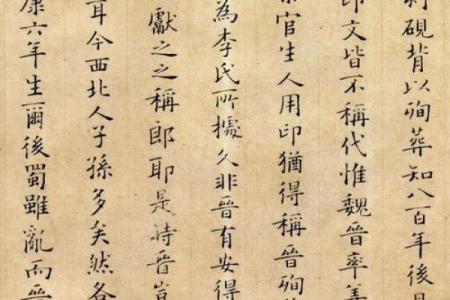 硯背以殉葬知八百年後
印文皆不稱代惟魏晉率善
官生人用印猶得稱晉殉
為李氏所據久非晉有安得
獻之之稱郎耶是時晉豈
耳今西北人子孫多矣然各
康六年生爾後蜀雖亂而晉